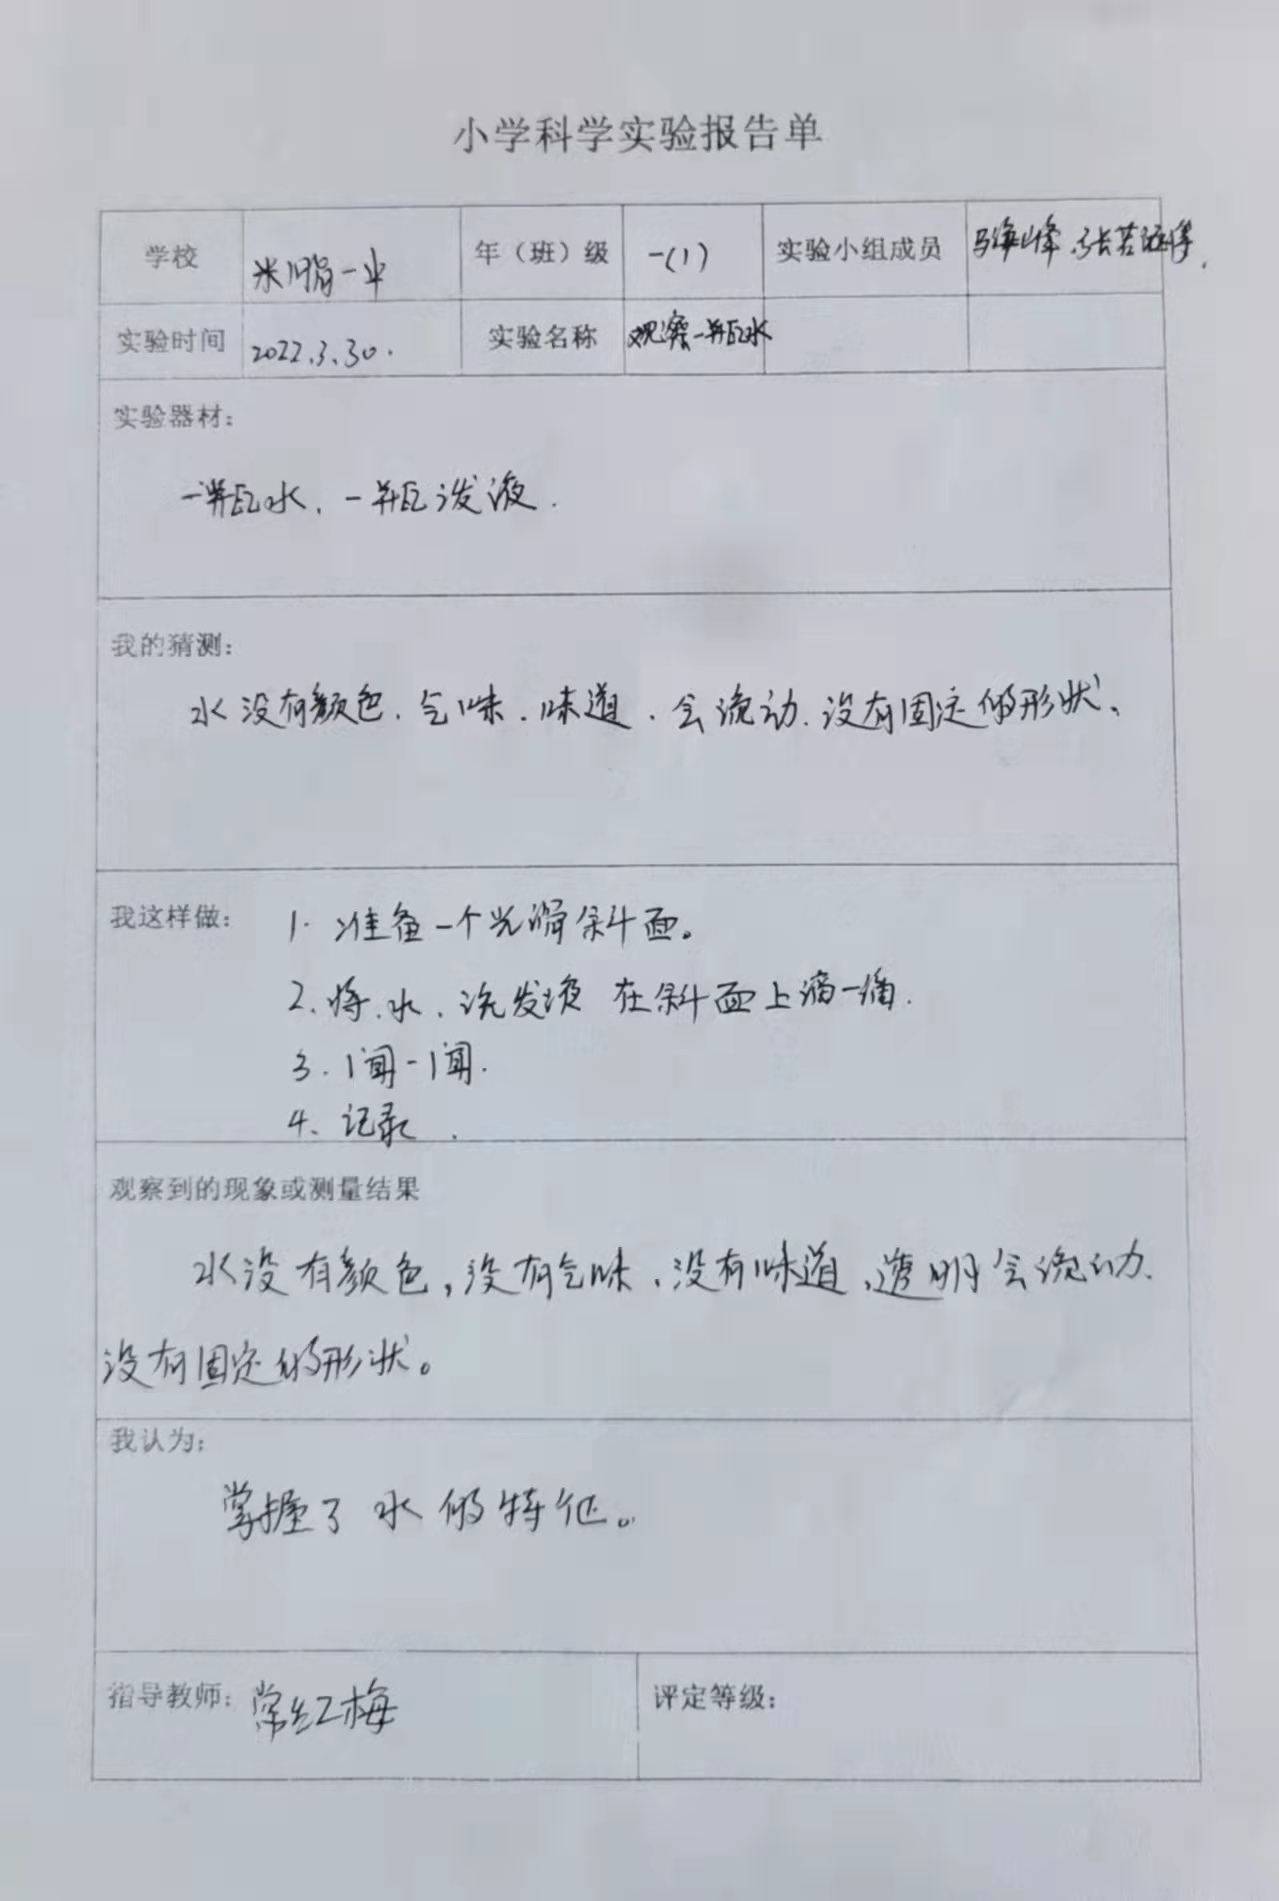 小学科学实验报告单
学校 年（班）级 一(1) 实验小组成员 马海峰、张若
实验时间 2022.3.30. 实验名称 观察一瓶水
实验器材：
一瓶水、一瓶洗发液.
我的猜测：
水没有颜色、气味、味道、会流动、没有固定的形状、
我这样做： 1. 准备一个光滑斜面。
2. 将水、洗发液 在斜面上滴一滴.
3. 闻一闻.
4、记录.
观察到的现象或测量结果
水没有颜色，没有气味、没有味道、透明会流动、
没有固定的形状。
我认为：
掌握了水的特征。
指导教师：常红梅 评定等级：